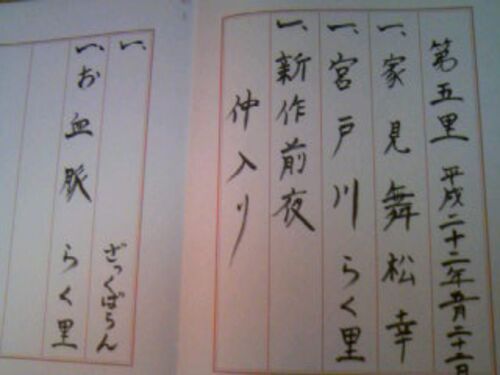 第五里 平成二十二年五月
一、家見舞 松幸
一、宮戸川 らく里
一、新作前夜
仲入り
一、 ざっくばらん
一、お血脈 らく里